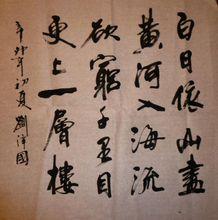 白日依山盡
黄河入海流
欲窮千里目
更上一層樓
辛卯年初夏 劉洋國